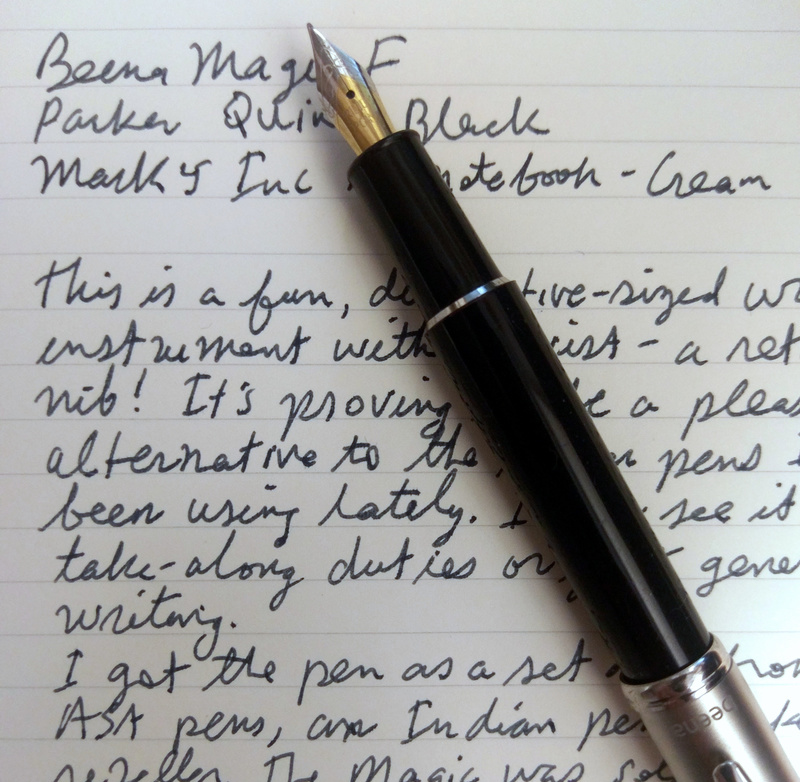 Beena Magi F
Parker Quin Black
Mark's Inc notebook - Cream
this is a fun, di tive-sized wr
instrument with wist - a ret
nib! It's proving be a pleas
alternative to the pens
been using lately. I see it
take-along duties or gene
writing.
I got the pen as a set from
ASA pens, an Indian pen
reseller. The Magic was sol
beena